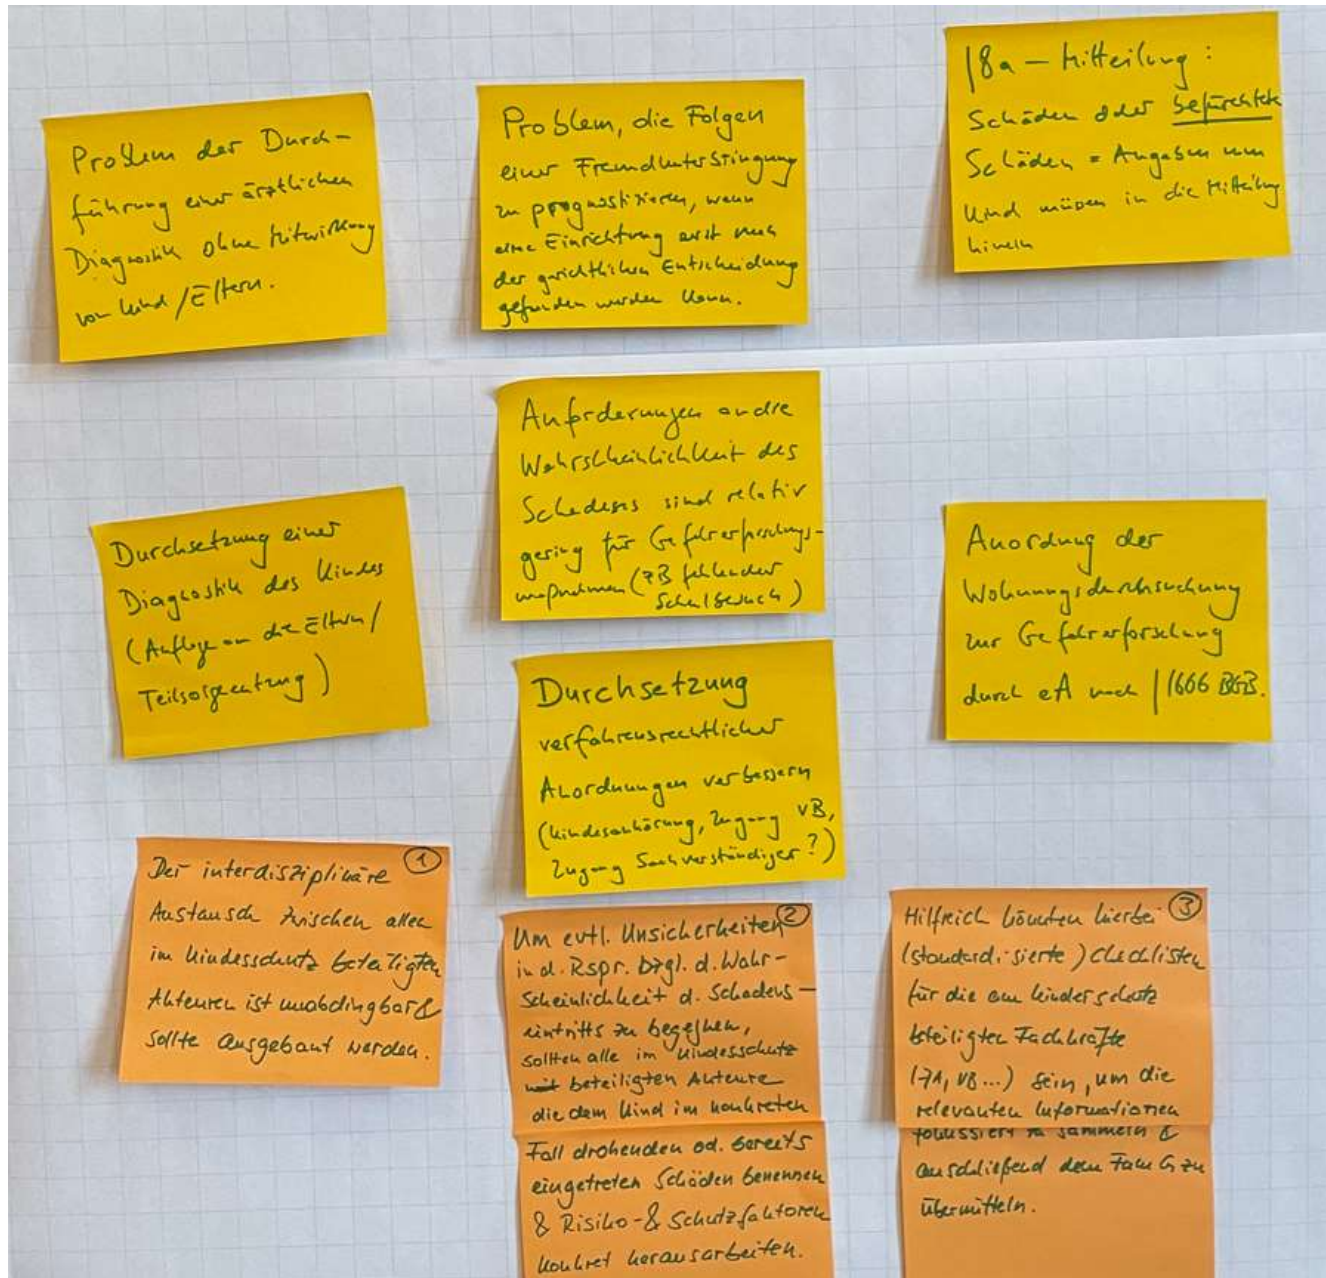 Problem der Durch-
führung einer ärztlichen
Diagnostik ohne Mitwirkung
von Kind / Eltern.
Problem, die Folgen
einer Fremdunterbringung
zu prognostizieren, wenn
eine Einrichtung erst nach
der gerichtlichen Entscheidung
gefunden werden kann.
18a – Mitteilung:
Schäden oder befürchtete
Schäden = Angaben zum
Kind müssen in die Mitteilung
hinein
Anforderungen an die
Wahrscheinlichkeit des
Schadens sind relativ
gering für Gefahrerforschungs-
maßnahmen (zB fehlender
Schulbesuch)
Durchsetzung einer
Diagnostik des Kindes
(Auflage an die Eltern /
Teilsorgeentzug)
Anordnung der
Wohnungsdurchsuchung
zur Gefahrerforschung
durch eA nach / 1666 BGB.
Durchsetzung
verfahrensrechtlicher
Anordnungen verbessern
(Kindesanhörung, Zugang VB,
Zugang Sachverständiger?)
Der interdisziplinäre ①
Austausch zwischen allen
im Kindesschutz beteiligten
Akteuren ist unabdingbar &
sollte ausgebaut werden.
Um evtl. Unsicherheiten ②
in d. Rspr. bzgl. d. Wahr-
scheinlichkeit d. Schadens-
eintritts zu begegnen,
sollten alle im Kindesschutz
beteiligten Akteure
die dem Kind im konkreten
Fall drohenden od. bereits
eingetreten Schäden benennen
& Risiko- & Schutzfaktoren
konkret herausarbeiten.
Hilfreich könnten hierbei ③
(standardisierte) Checklisten
für die am Kinderschutz
beteiligten Fachkräfte
(JA, VB...) sein, um die
relevanten Informationen
fokussiert zu sammeln &
anschließend dem FamG zu
übermitteln.